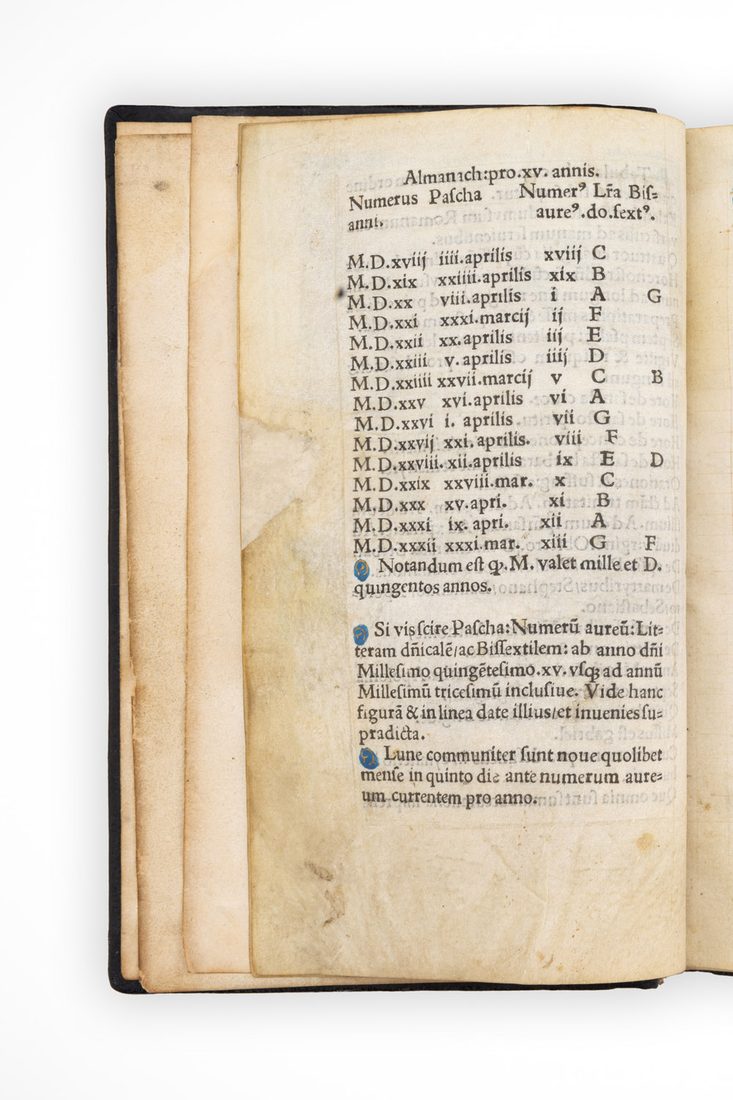 Almanach:pro.xv. annis.
Numerus Pascha Numerꝰ Lr̃a Biſ⸗
anni. aureꝰ.do.ſextꝰ.
M.D.xviij iiii.aprilis xviij C
M.D.xix xxiiii.aprilis xix B
M.D.xx viii.aprilis i A G
M.D.xxi xxxi.marcij ij F
M.D.xxii xx.aprilis iij E
M.D.xxiii v.aprilis iiij D
M.D.xxiiii xxvii.marcij v C B
M.D.xxv xvi.aprilis vi A
M.D.xxvi i. aprilis. vii G
M.D.xxvij xxi.aprilis. viii F
M.D.xxviii. xii.aprilis ix E D
M.D.xxix xxviii.mar. x C
M.D.xxx xv.apri. xi B
M.D.xxxi ix. apri. xii A
M.D.xxxii xxxi.mar. xiii G F
Notandum eſt ꝙ. M. valet mille et D.
quingentos annos.
Si vis ſcire Paſcha: Numerū aureū: Lit⸗
teram dñicalē/ac Biſſextilem: ab anno dñi
Milleſimo quingēteſimo.xv. vſqꝫ ad annū
Milleſimū triceſimū incluſiue. Vide hanc
figurā & in linea date illius/et inuenies ſu⸗
pradicta.
Lune communiter ſunt noue quolibet
menſe in quinto die ante numerum aure⸗
um currentem pro anno.